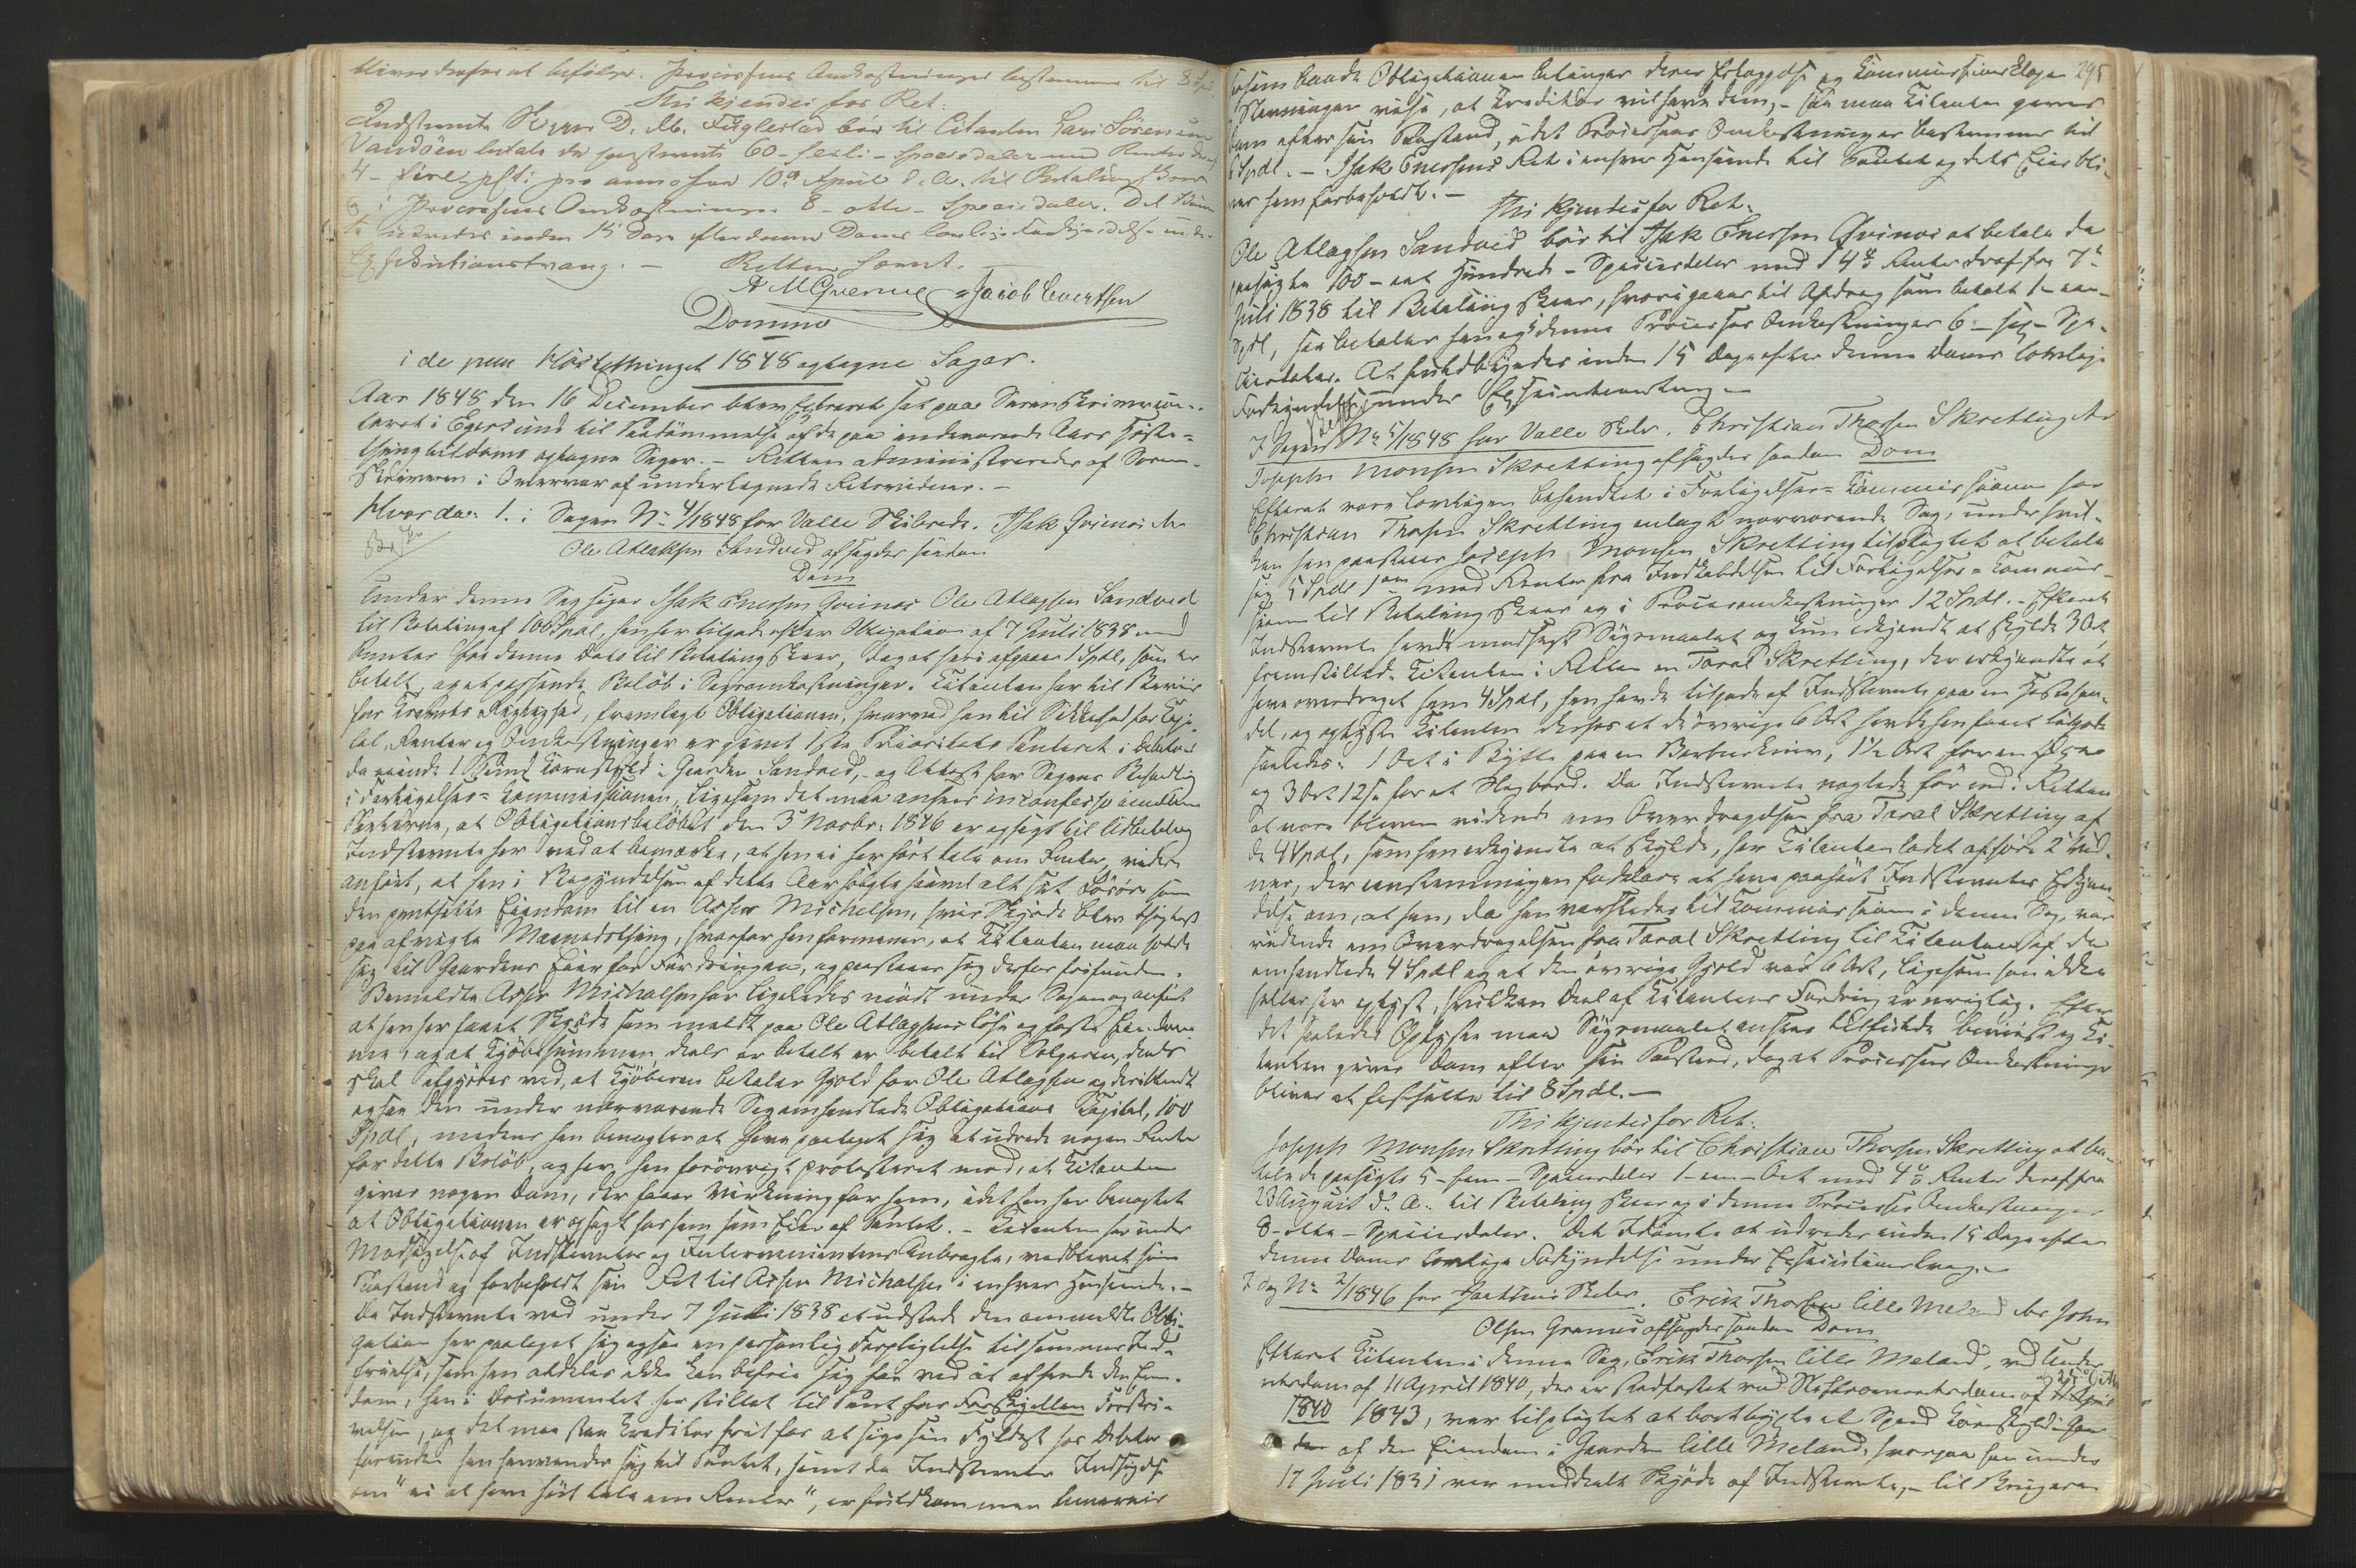 bliver derfor at befølge. Processens Omkostninger bestemmes til 8 Spd.
Thi kjendes for Ret:
Indstevnte Skipper D. M. Fuglestad bør til Citanten Lars Sörensen
Vandöen betale de paastevnte 60 - sexti - Speciedaler med Renter deraf
4 - fire pCt: pro anno fra 10de April d. A. til Betaling skeer
og i Processens Omkostninger 8 - otte - Speciedaler. Det Idömte
at udredes inden 15 Dage efter denne Doms lovlige Forkyndelse under
Exsekutionstvang. — Retten hævet.
A M Qverme Jacob Evertsen
Domme
i de paa Höstethinget 1848 optagne Sager.
Aar 1848 den 16 December blev Extraret sat paa Sorenskriverkon-
toret i Egersund til Paadömmelse af de paa indeværende Aars Höste-
thing til Doms optagne Sager. — Retten administreredes af Soren-
skriveren i Overvær af undertegnede Retsvidner. —
Hvorda: 1. i Sagen No 4/1848 for Valle Skibrede. Isak Qvinei ctr
Ole Atlaksen Sandved afsagdes saadan
Dom
Under denne Sag söger Isak Enersen Qvinei Ole Atlagsen Sandved
til Betaling af 100 Spdl, han har tilgode efter Obligation af 7 Juli 1838 med
Renter fra denne Dato til Betaling skeer, dog at heri afgaaer 1 Spdl, som er
betalt, og et passende Belöb i Sagsomkostninger. Citanten har til Beviis
for Kravets Rigtighed, fremlagt Obligationen, hvorved han til Sikkerhed for Capi-
tal, Renter og Omkostninger er givet 1ste Prioritets Panteret i Debitors
da eiende 1 Spand Kornskyld i Gaarden Sandved, og Attest for Sagens Behandling
i Forligelses-Commissionen, ligesom det maa ansees in confesso imellem
Parterne, at Obligationsbelöbet den 3 Novbr: 1846 er opsagt til Udbetaling
Indstevnte har ved at bemærke, at han ei har hört tale om Renter, videre
anfört, at han i Begyndelsen af dette Aar solgte saavel alt sit Lösöre som
den pantsatte Eiendom til en Asser Michelsen, hvis Skjöde blev thinglæst
paa afvigte Maanedsthing, hvorfor han formener, at Citanten maa holde
sig til Gaardens Eier for Fordringen, og paastaaer sig derfor frifunden.
Bemeldte Asser Michelsen har ligeledes mödt under Sagen og anfört
at han har faaet Skjöde som meldt paa Ole Atlagsens löse og faste Eiendom-
me, og at Kjöbesummen deels er betalt er betalt til Sælgeren, deels
skal afgjöres ved, at Kjöberen betaler Gjeld for Ole Atlagsen og deriblandt
ogsaa den under nærværende Sag omhandlede Obligations Capital, 100
Spdl, medens han benægter at have paataget sig at udrede nogen Rente
for dette Belöb, og har han forövrigt protesteret mod, at Citanten
gives nogen Dom, der faaer Virkning for ham, idet han har benægtet
at Obligationen er opsagt for ham som Eier af Pantet. — Citanten har under
Modsigelse af Indstevntes og Intervenientens Anbragte, vedblevet sin
Paastand og forbeholdt sin Ret til Asser Michelsen i enhver Henseende. —
Da Indstevnte ved under 7 Juli 1838 at udstede den ommeldte Obli-
gation har paataget sig ogsaa en personlig Forpligtelse til sammes Ind-
frielse, som han aldeles ikke kan befrie sig fra ved at afhende den Eien-
dom, han i Documentet har stillet til Pant for Forskjellen Forskri-
velsen, og det maa staa Creditor frit for at söge sin Fyldest hos Debitor
forinden han henvender sig til Pantet, samt da Indstevntes Indsigelse
om "ei at have hört tale om Renter", er fuldkommen
295
saasom baade Obligationen betinger deres Erlæggelse og Commissions Klagen
Stevningen viise, at Creditor vil have dem, — saa maa Citanten gives
Dom efter sin Paastand, idet Processens Omkostninger bestemmes til
6 Spdl. — Isak Enersens Ret i enhver Henseende til Pantet og dets Eier bli-
ver ham forbeholdt. —
Thi kjendes for Ret:
Ole Atlagsen Sandved bör til Isak Enersen Qvinei at betale de
paasögte 100 - eet Hundrede - Speciedaler med 4 % Renter deraf fra 7de
Juli 1838 til Betaling skeer, hvori gaaer til Afdrag som betalt 1 - een -
Spdl, saa betaler han og i denne Processes Omkostninger 6 - sex - Spe-
ciedaler. At fuldbyrdes inden 15 Dage efter denne Doms lovlige
Forkyndelse under Exsecutionstvang. —
I Sagen No 5/1848 for Valle Skibr. Christian Thorsen Skretting ctr
Joseph Monsen Skretting afsagdes saadan Dom
Efterat være lovligen behandlet i Forligelses-Commissionen har
Christian Thorsen Skretting anlagt nærværende Sag, under hvil-
ken han paastaaer Joseph Monsen Skretting tilpligtet at betale
sig 5 Spdl 1 Ort med Renter fra Indkaldelsen til Forligelses-Commis-
sionen til Betaling skeer og i Procesomkostninger 12 Spdl. — Efterat
Indstevnte havde modsagt Sögsmaalet og kun erkjendt at skylde 3 Ort
fremstillede Citanten i Retten en Tarald Skretting, der erkjendte at
have overdraget ham 4 Spdl, han havde tilgode af Indstevnte paa en Hestehan-
del, og oplyste Citanten derhos at de övrige 6 Ort havde han faaet tilgode
saaledes: 1 Ort i Bytte paa en Barberkniv, 1½ Ort for en
og 3 Ort 12 s for et Slagbord. Da Indstevnte nægtede for end. Retten
at være bleven vidende om Overdragelsen fra Tarald Skretting af
de 4 Spdl, som han erkjendte at skylde, har Citanten ladet afhöre 2 Vid-
ner, der eenstemmigen forklare at have paahört Indstevntes Erkjen-
delse om, at han, da han varsledes til Commissionen i denne Sag, var
vidende om Overdragelsen fra Tarald Skretting til Citanten af de
omhandlede 4 Spdl og at den övrige Gjeld var 6 Ort, ligesom han ikke
heller har oplyst, hvilken Deel af Citantens Fordring er urigtig. Efter
det saaledes Oplyste maa Sögsmaalet ansees tilfulde beviist og Ci-
tanten gives Dom efter sin Paastand, dog at Processens Omkostninger
bliver at fastsætte til 8 Spdl. —
Thi kjendes for Ret:
Joseph Monsen Skretting bör til Christian Thorsen Skretting at be-
tale de paasögte 5 - fem - Speciedaler 1 - een - Ort med 4 % Renter deraf fra
23 August d: A: til Betaling skeer og i denne Processes Omkostninger
8 - otte - Speciedaler. Det Idömte at udredes inden 15 Dage efter
denne Doms lovlige Forkyndelse under Exsecutionstvang. —
I Sag No 2/1846 for Skibr. Erik Thorsen lille Meland ctr John
Olsen afsagdes saadan Dom
Efterat Citanten i denne Sag, Erik Thorsen lille Meland, ved Under-
retsdom af 11 April 1840, der er stadfæstet ved Stiftsoverretsdom af
1840 1843, var tilpligtet at bortbygsle et Spand Kornskyld i Gaar-
den af den Eiendom i Gaarden lille Meland, hvorpaa han under
17 Juli 1831 var meddeelt Skjöde af Indstevnte, — til Brugeren